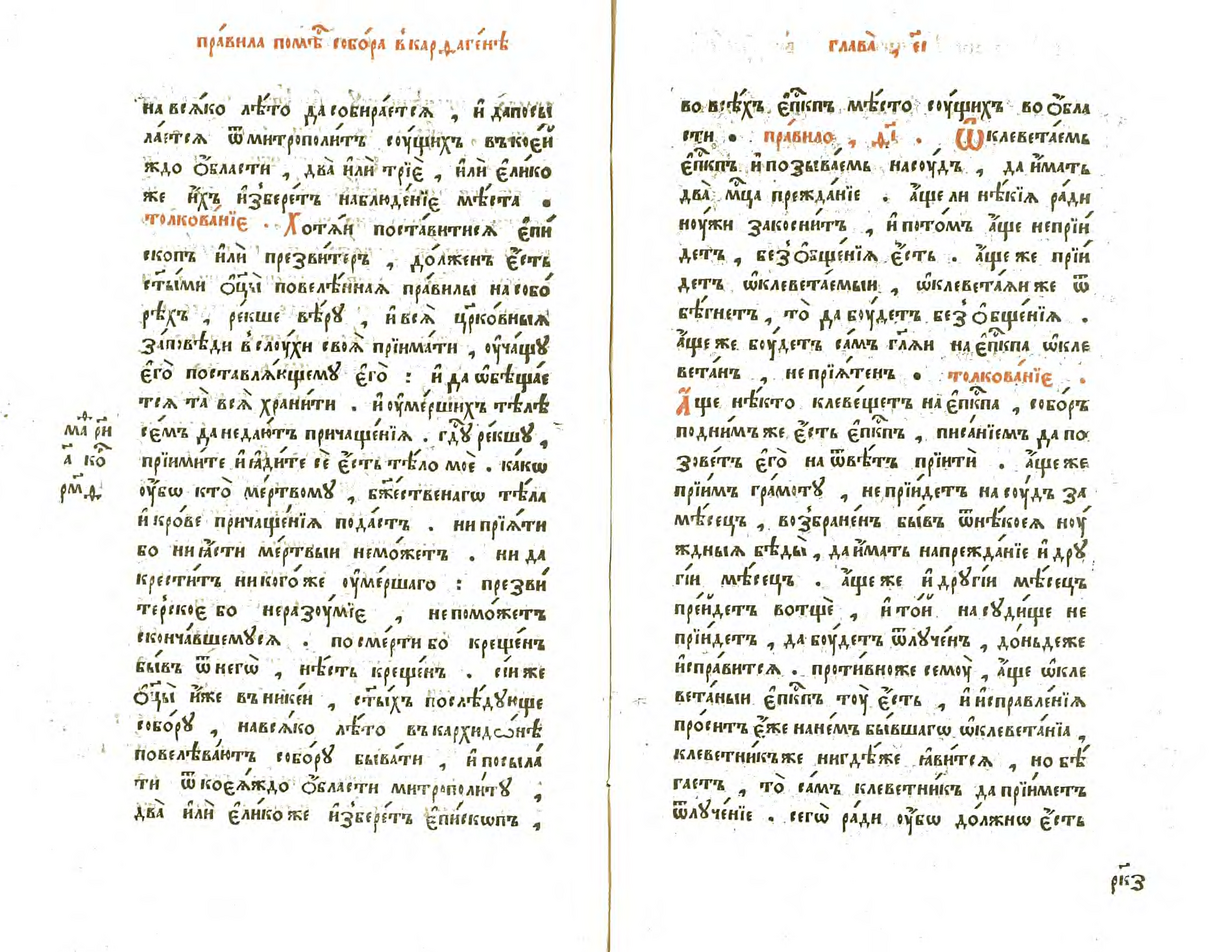 пра́вила помѣ́ст собо́ра в̾кардаге́нѣ
на всѧ́ко лѣ́то да собира́етсѧ , и҆ дапосы
ла́етсѧ ѿ митрополи́тъ соу́щихъ въ кое́и
ждо ѻ҆́бласти , два̀ и҆лѝ трїѐ , и҆лѝ є҆ли́ко
же и҆́хъ и҆з̾бере́тъ наблюде́нїе мѣ́ста .
толкова́нїе . Хотѧ́и поста́витисѧ є҆пи
скопъ и҆лѝ презви́теръ , до́лженъ є҆́сть
ст҃ы́ми ѻ҆ц҃ы̀ повелѣ́ннаѧ пра́вилы на собо
рѣ́хъ , ре́кше вѣ́рꙋ , и҆ всѧ̀ цр҃ко́вныѧ
за́повѣди в̾слоу́хи своѧ̀ прїима́ти , оу҆ча́щꙋ
є҆го̀ поставлѧ́ющемꙋ є҆го̀ : и҆ да ѡ҆бѣща́е
тсѧ та̀ всѧ̀ храни́ти . и҆ оу҆ме́ршихъ тѣлѣ
се́мъ да недаю́тъ причаще́нїѧ . гд҇ꙋ ре́кшꙋ ,
прїими́те и҆ ꙗ҆ди́те сѐ є҆́сть тѣ́ло моѐ . ка́кѡ
оу҆́бѡ кто̀ ме́ртвомꙋ , бж҃е́ственагѡ тѣ́ла
и҆ кро́ве причаще́нїѧ пода́стъ . ни прїѧ́ти
бо ни ꙗ҆́сти ме́ртвыи не мо́жетъ . ни да
крести́тъ ни кого́ же оу҆ме́ршаго : презви́
терское бо неразоу́мїе , не помо́жетъ
сконча́вшемꙋсѧ . по сме́рти бо креще́нъ
бы́въ ѿ негѡ̀ , нѣ́сть креще́н . сїи же
ѻ҆ц҃ы̀ и҆́же в̾ нике́и , ст҃ы́хъ послѣ́дꙋюще
собо́рꙋ , на всѧ́ко лѣ́то въ кархидѡ́нѣ
повелѣва́ютъ собо́рꙋ быва́ти , и҆ посыла́
ти ѿ коеѧ́ждо ѻ҆́бласти митрополи́тꙋ ,
два̀ и҆лѝ є҆ли́ко же и҆з̾бере́тъ є҆пи́скѡпъ ,
ма рѳи
а҃ ко
рм҃д
глава̀ , е҃і
во всѣ́хъ є҆пⷭ҇кпъ мѣ́сто соу́щихъ во ѻ҆́бла
сти . пра́вило , д҃і . Ѡ҆клевета́емь
є҆пⷭ҇кпъ и҆ позыва́емь на соу́дъ , да и҆́мать
два̀ мц҇а прежда́нїе . а҆́ще ли нѣ́кїѧ ради
ноу́жи закосни́тъ , и҆ пото́мъ а҆́ще не прїи́
детъ , без̾ ѻ҆бще́нїѧ є҆́сть . а҆́ще же прїи́
детъ ѡ҆клевета́емыи , ѡ҆клевета́ѧи же ѿ
бѣ́гнетъ , то̀ да боу́детъ без̾ ѻ҆бще́нїѧ .
а҆́ще же боу́детъ са́мъ гл҃ѧи на є҆пⷭ҇кпа ѡ҆кле
вета́нъ , не прїѧ́тенъ . толкова́нїе .
А҆́ще нѣ́кто клеве́щетъ на є҆пⷭ҇кпа , собо́ръ
подни́мъ же є҆́сть є҆пⷭ҇кпъ , писа́нїемъ да по
зове́тъ є҆го̀ на ѿвѣ́тъ прїитѝ . а҆́ще же
прїи́мъ гра́мотꙋ , не прїи́детъ на соу́дъ за
мѣ́сецъ , возбране́нъ бы́въ ѿ нѣ́коеѧ ноу́
ждныѧ бѣды̀ , да и҆́мать на прежда́нїе и҆ дрꙋ
гі́и мѣ́сецъ . а҆́ще же и҆ дрꙋгі́и мѣ́сецъ
пре́йдетъ вотщѐ , и҆ то́й на сꙋди́ще не
прїи́детъ , да боу́детъ ѿлꙋче́нъ , до́ньдеже
и҆спра́витсѧ . проти́вно же семоу̀ , а҆́ще ѡ҆кле
вета́ныи є҆пⷭ҇кпъ тоу̀ є҆́сть , и҆ и҆справле́нїѧ
про́ситъ є҆́же на не́мъ бы́вшагѡ ѡ҆клевета́нїа ,
клеветни́къ же нигдѣ́ же ꙗ҆ви́тсѧ , но бѣ́
гаетъ , то̀ са́мъ клеветни́къ да прїи́метъ
ѿлꙋче́нїе . сегѡ̀ ра́ди оу҆́бѡ до́лжнѡ є҆́сть
рк҃з